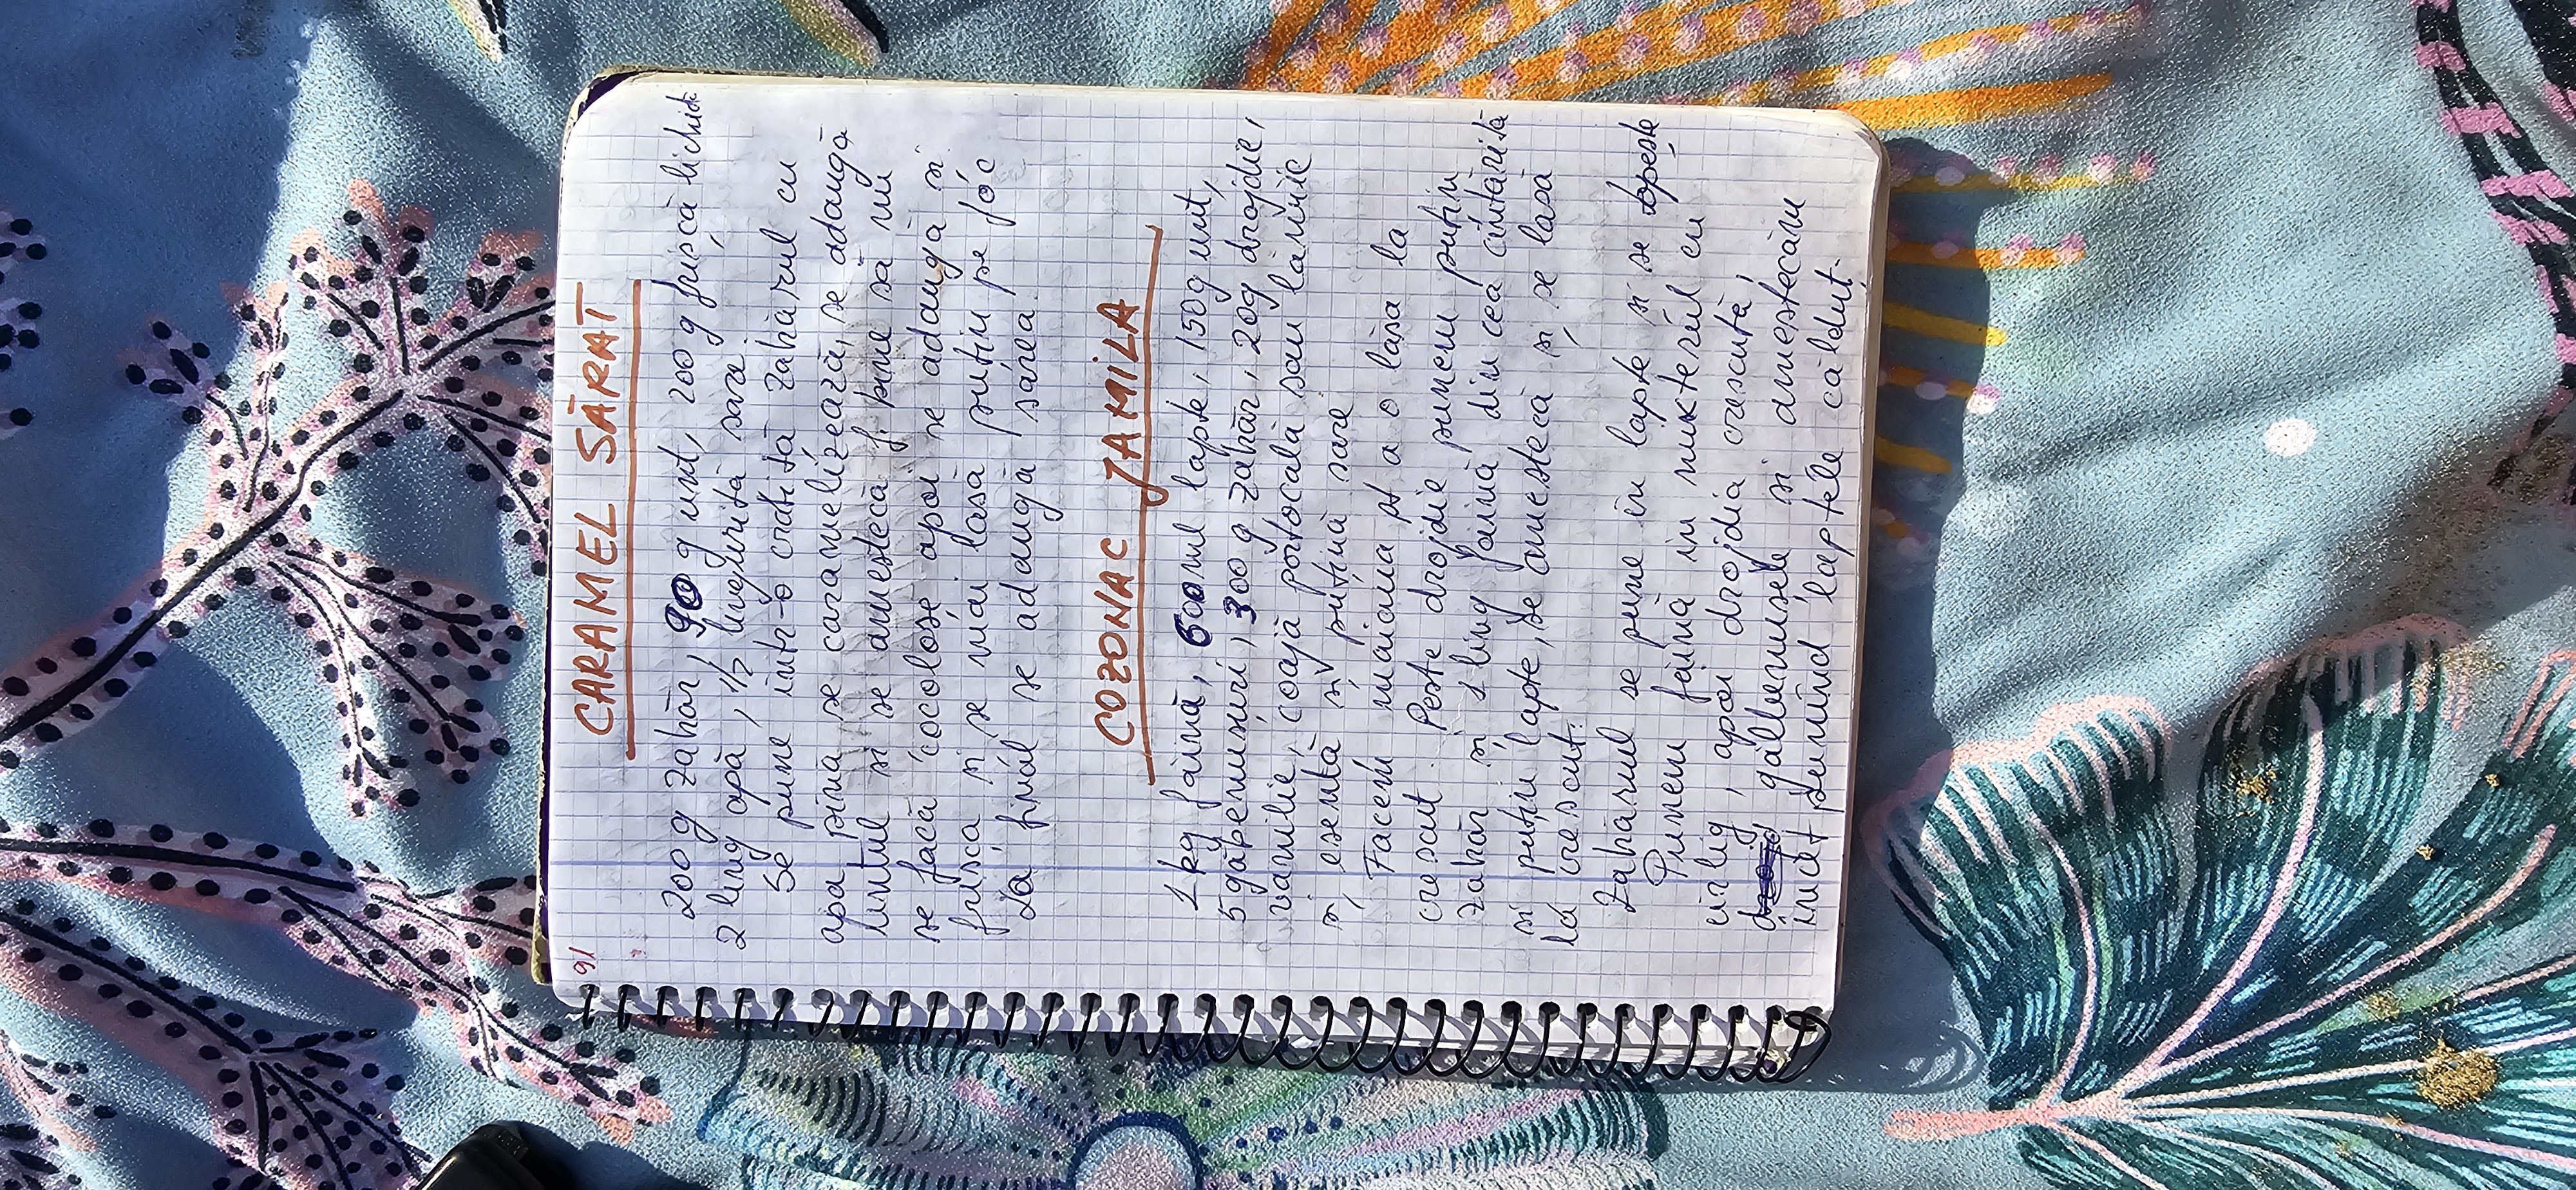 91
CARAMEL SĂRAT
200 g zahăr, 90 g unt, 200 g frișcă lichidă
2 ling apă, 1/2 linguriță sare.
Se pune într-o cratiță zahărul cu
apa pînă se caramelizează, se adaugă
untul și se amestecă f. bine să nu
se facă cocoloșe apoi se adaugă și
frișca și se mai lasă puțin pe foc
La final se adaugă sarea.
COZONAC JAMILA
1 kg făină, 600 ml lapte, 150 g unt,
5 găbenușuri, 300 g zahăr, 20g drojdie,
vanilie, coajă portocală sau lămîie
și esență și puțină sare
Facem maiaua pt a o lăsa la
crescut. Peste drojdie punem puțin
zahăr și 1 ling făină din cea cîntărită
și puțin lapte, se amestecă și se lasă
la crescut.
Zahărul se pune în lapte și se topește
Punem făină în mixterul cu
cîrlig, apoi drojdia crescută,
gălbenușele și amestecăm
încet punînd laptele călduț.